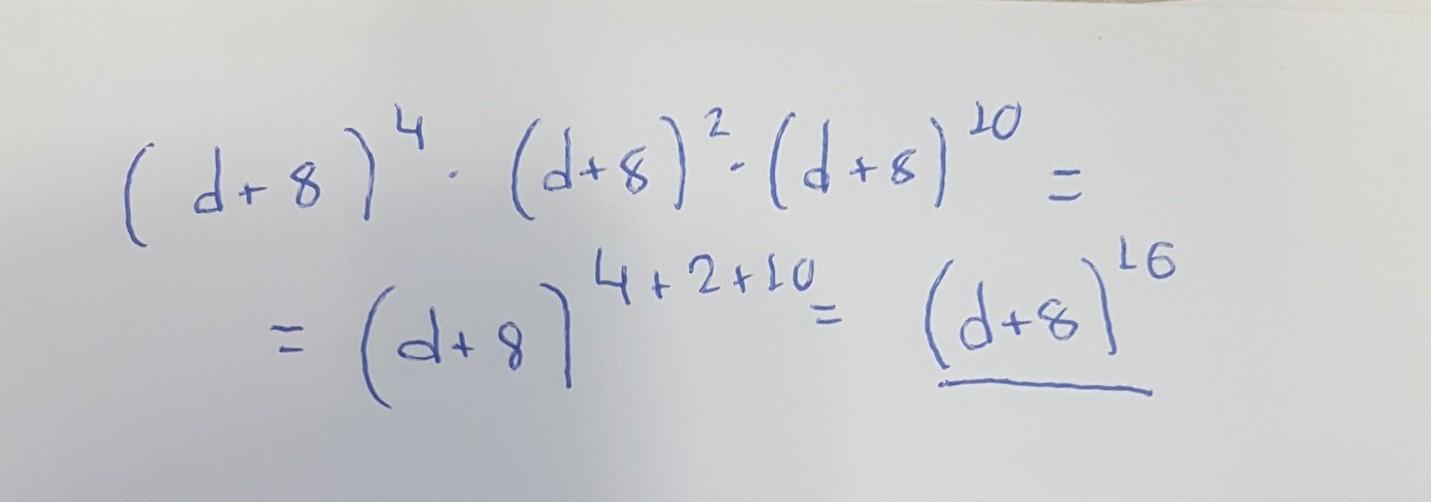 (d+8)⁴ · (d+8)² · (d+8)¹⁰ =
= (d+8)⁴⁺²⁺¹⁰ = (d+8)¹⁶